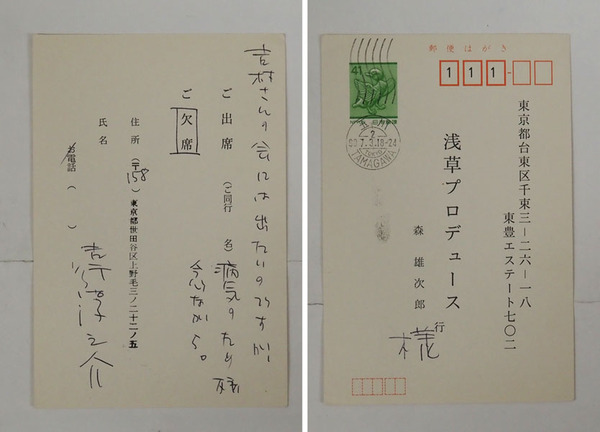 吉村さんの会には出たいのですが、
病気のため残
念ながら。
ご出席 (ご同行 名)
ご欠席
住所 (〒158) 東京都世田谷区上野毛三ノ二十二ノ五
氏名
吉行淳之介
お電話 ( )
郵便はがき
111-
41
日本郵便
TAMAGAWA
東京都台東区千束三―二六―一八
東豊エステート七〇二
浅草プロデュース
森雄次郎 行
様